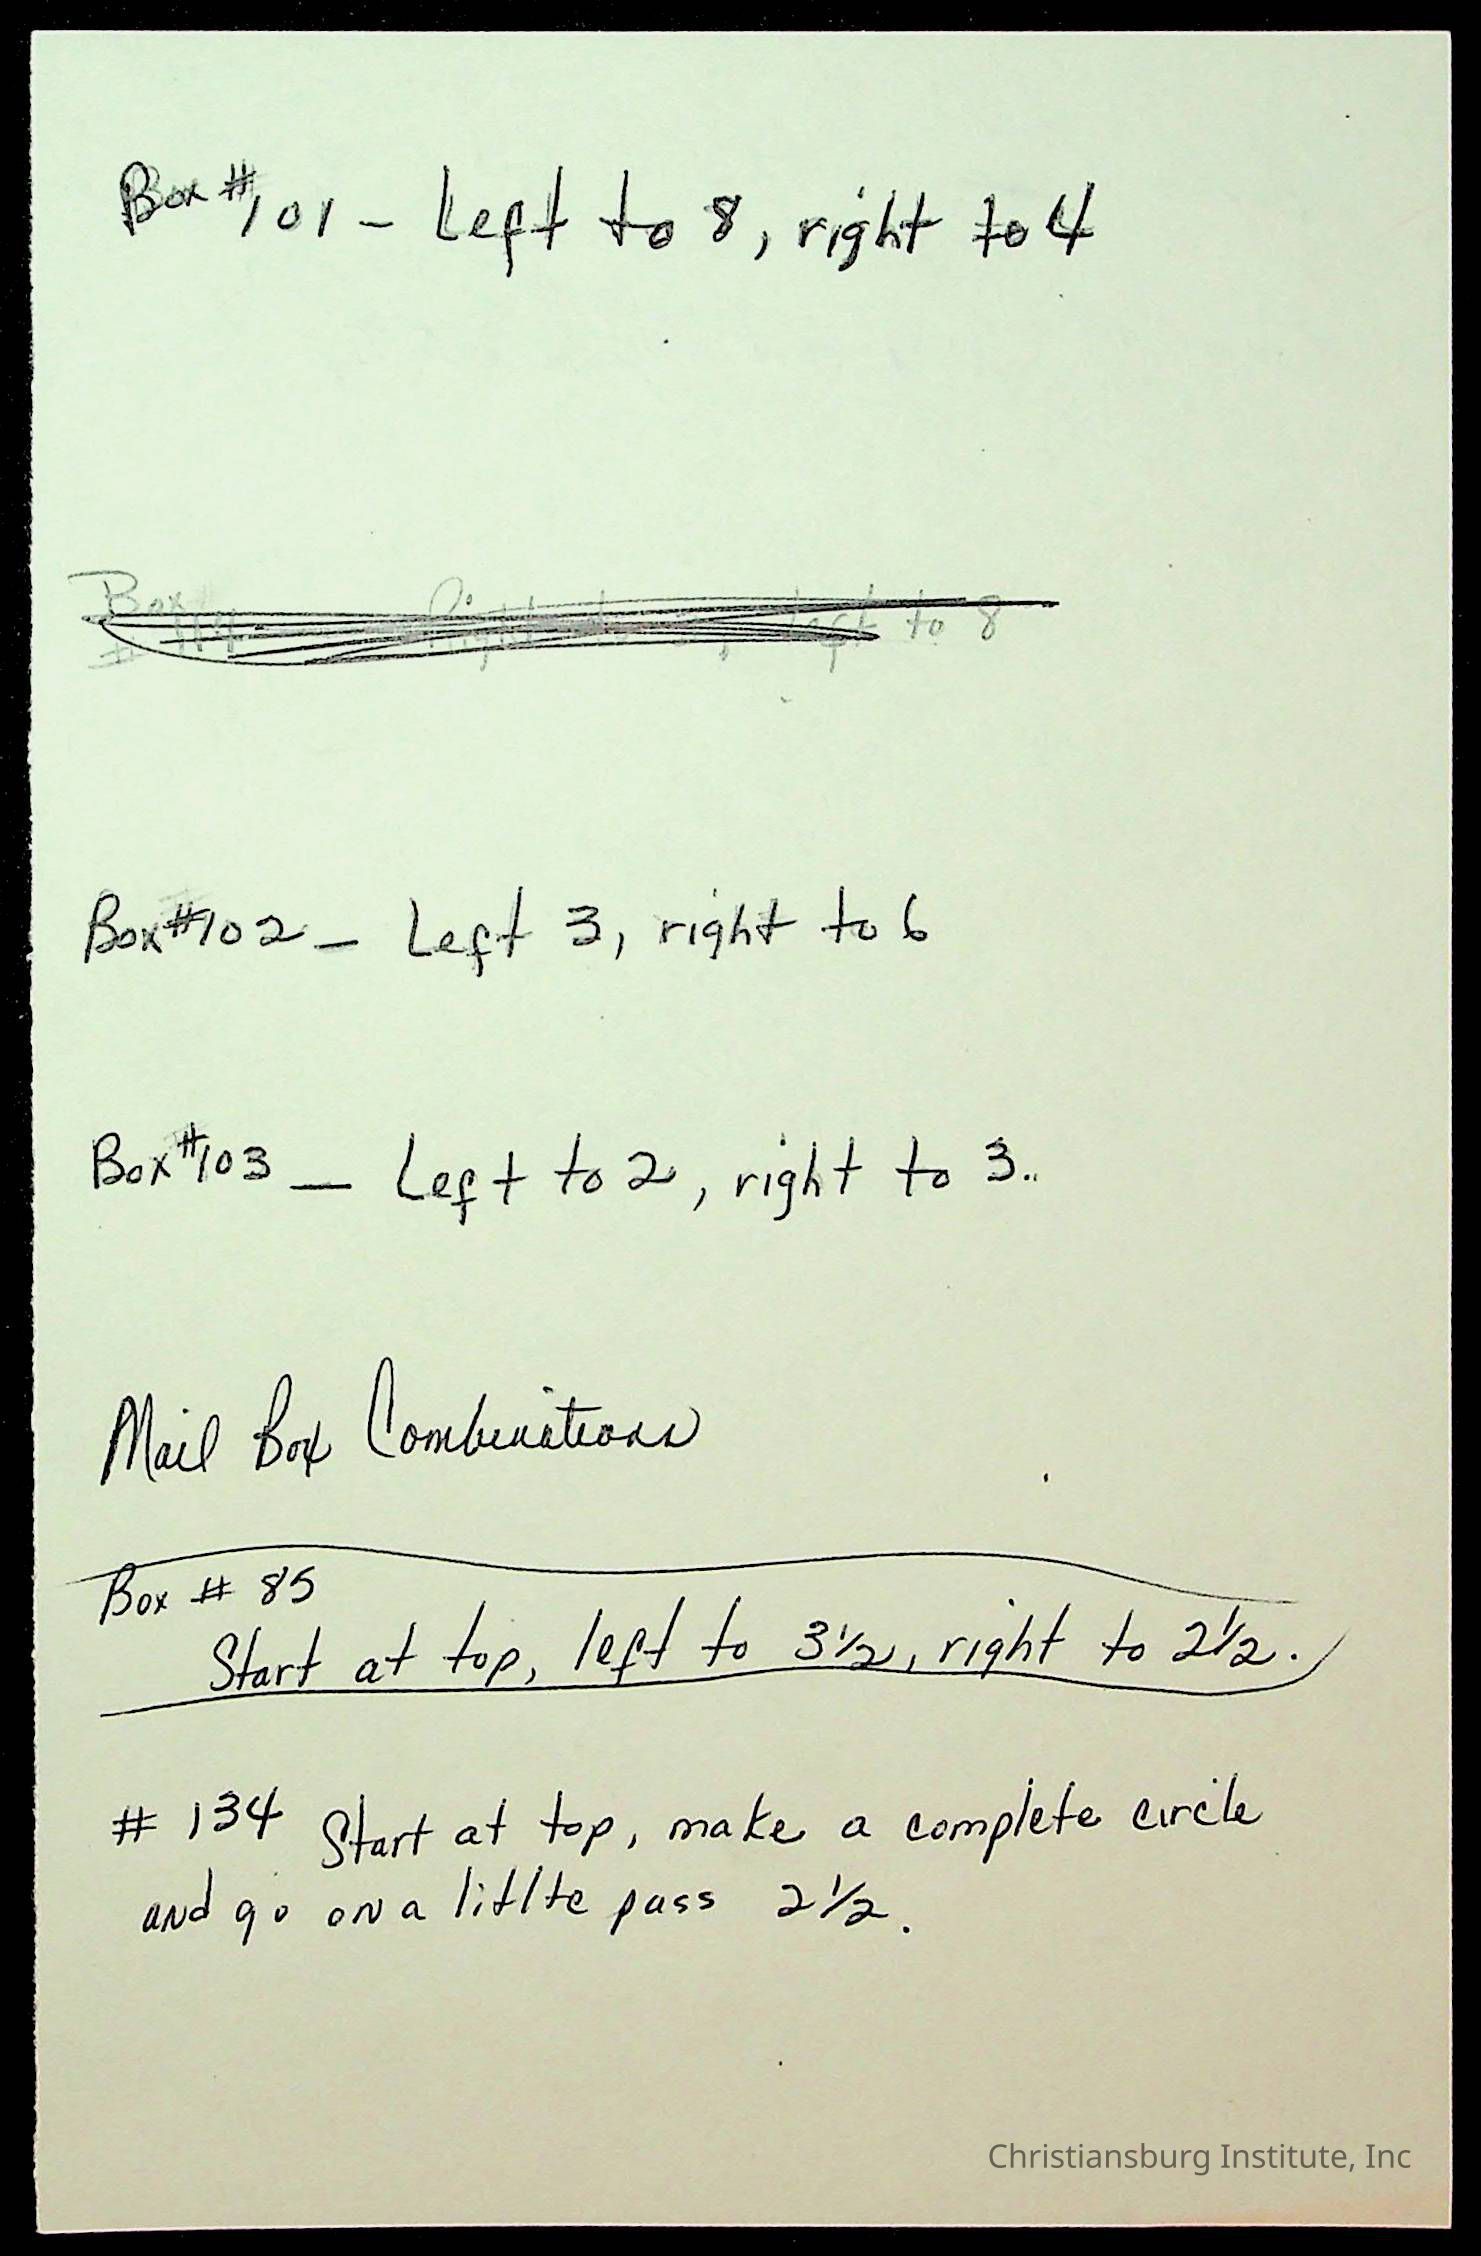 Box #101 - Left to 8, right to 4
Box
# Right left to 8
Box #102 - Left 3, right to 6
Box #103 - Left to 2, right to 3..
Mail Box Combinations
Box # 85
Start at top, left to 3 1/2, right to 2 1/2.
# 134 Start at top, make a complete circle
and go on a litlte pass 2 1/2.
Christiansburg Institute, Inc